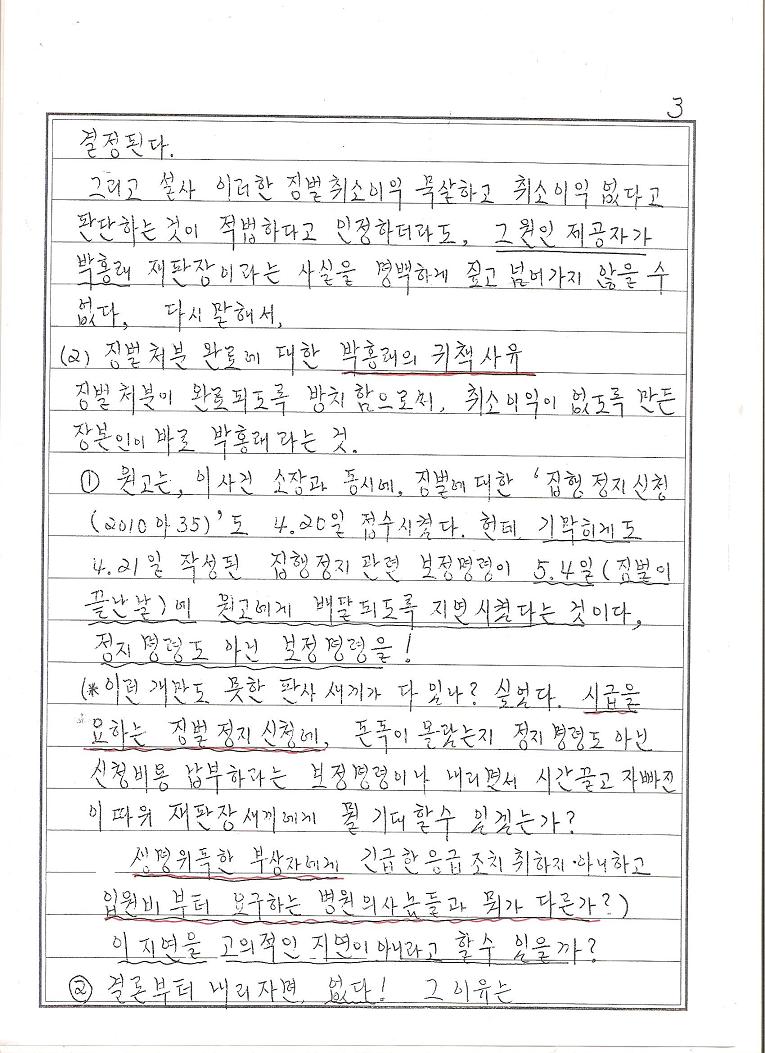 3
결정된다.
그리고 설사 이러한 징벌취소이익 묵살하고 취소이익 없다고
판단하는 것이 적법하다고 인정하더라도, 그 원인 제공자가
박홍래 재판장이라는 사실을 명백하게 짚고 넘어가지 않을 수
없다, 다시 말해서,
(2) 징벌처분 완료에 대한 박홍래의 귀책사유
징벌처분이 완료되도록 방치함으로써, 취소이익이 없도록 만든
장본인이 바로 박홍래라는 것.
① 원고는, 이 사건 소장과 동시에, 징벌에 대한 '집행정지신청
(2010아35)'도 4.20일 접수시켰다. 헌데 기막히게도
4.21일 작성된 집행정지 관련 보정명령이 5.4일(징벌이
끝난 날)에 원고에게 배달되도록 지연시켰다는 것이다,
정지명령도 아닌 보정명령을!
(※이런 개만도 못한 판사새끼가 다 있나? 싶었다. 시급을
요하는 징벌정지신청에, 돈독이 올랐는지 정지명령도 아닌
신청비용 납부하라는 보정명령이나 내리면서 시간끌고 자빠진
이 따위 재판장새끼에게 뭘 기대할수 있겠는가?
생명위독한 부상자에게 긴급한 응급조치 취하지 아니하고
입원비부터 요구하는 병원의사놈들과 뭐가 다른가?)
이 지연을 고의적인 지연이 아니라고 할 수 있을까?
② 결론부터 내리자면, 없다! 그 이유는